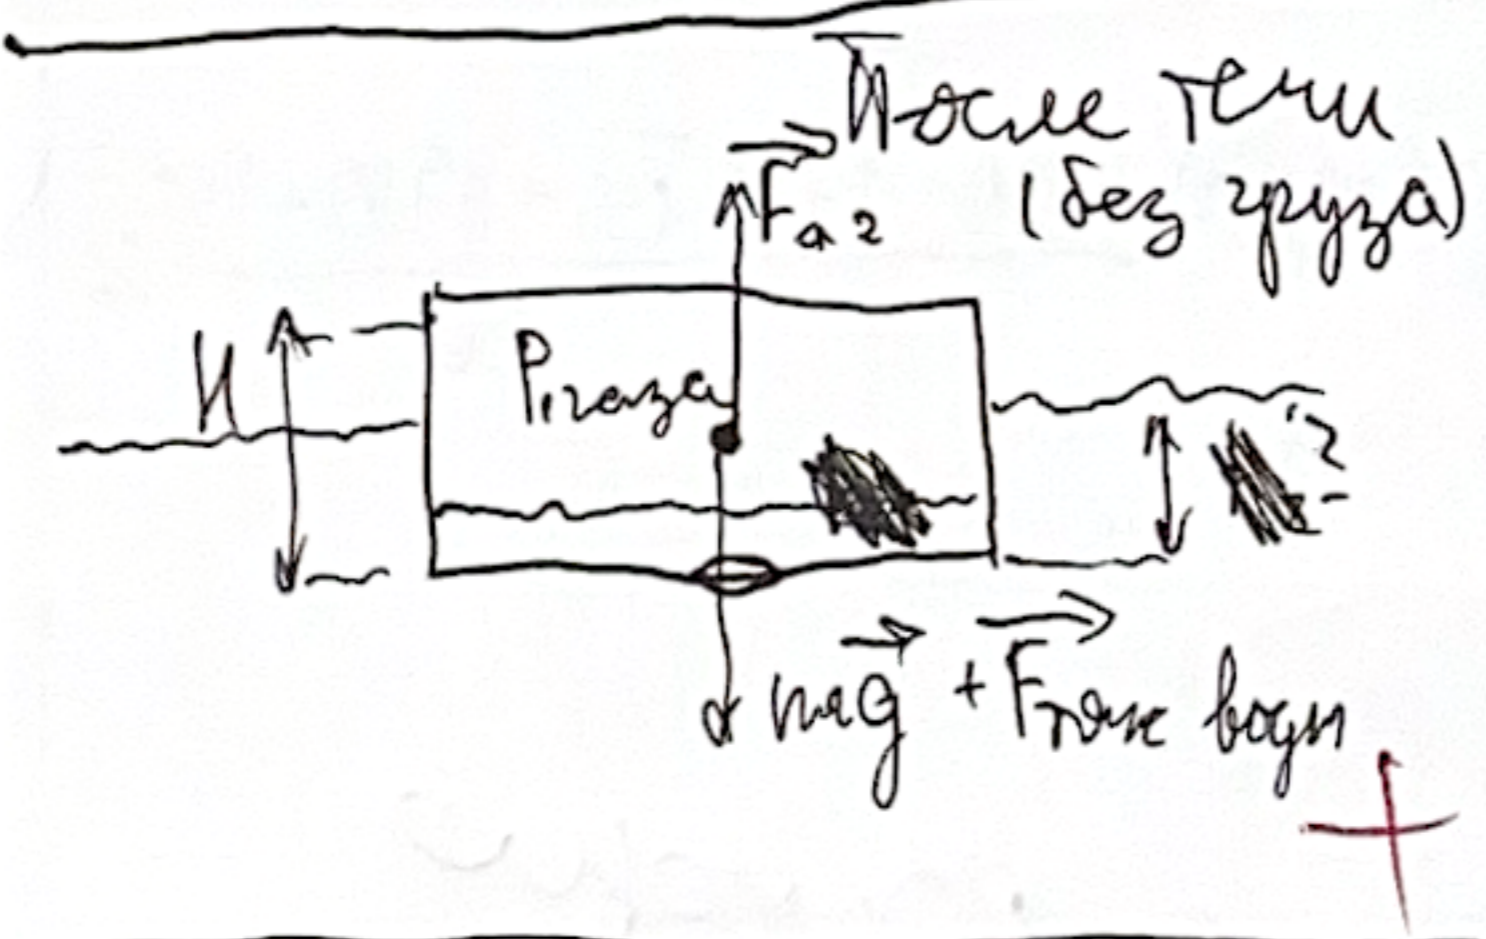 После течи
(без груза)
Fa2
H
P1газа
?
mg + Fтяж воды